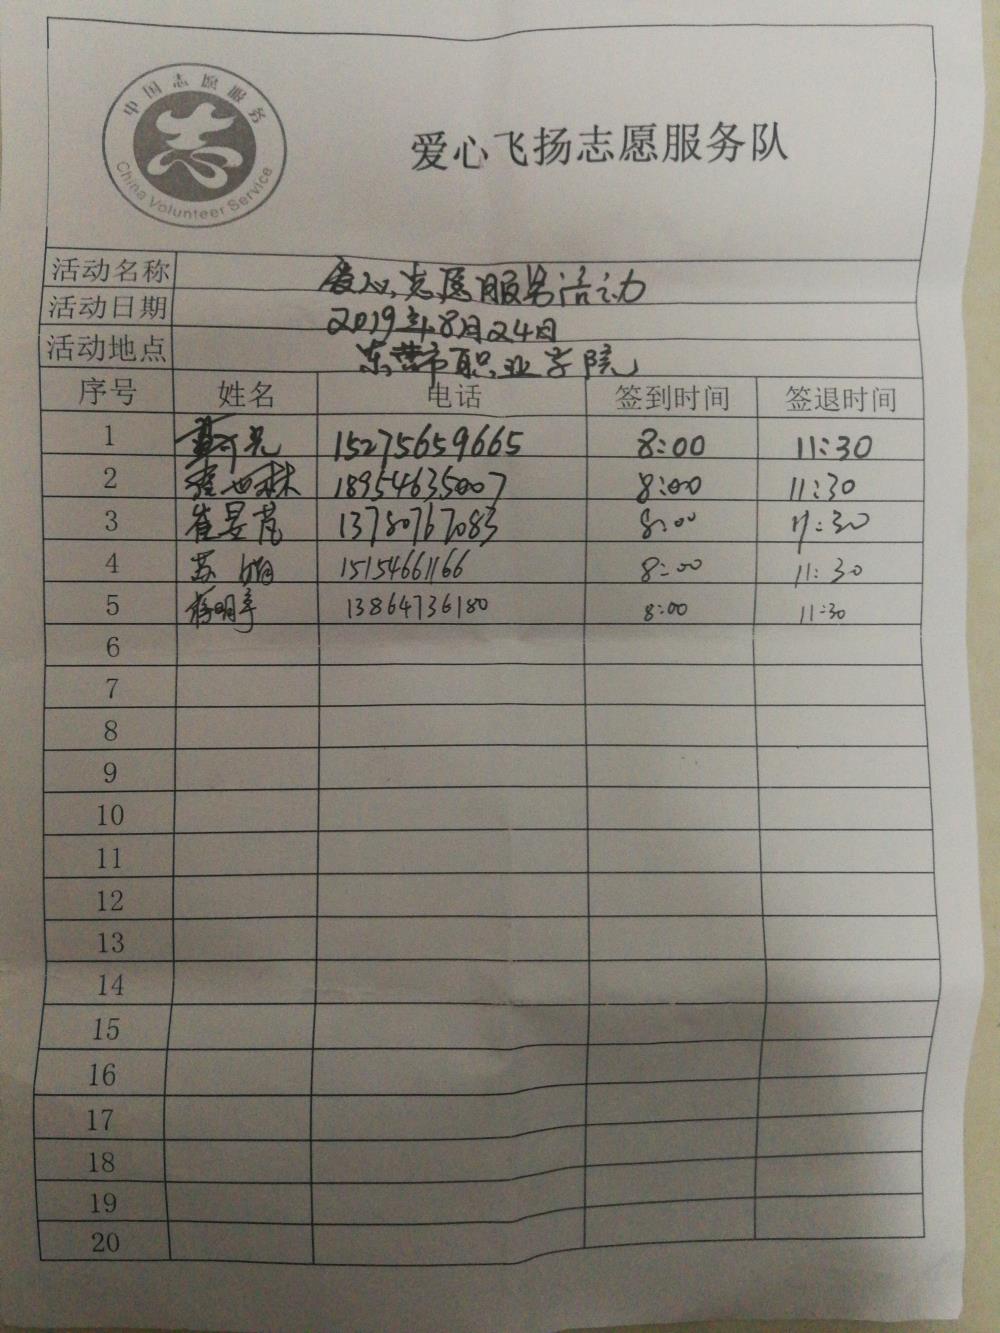 中国志愿服务
China Volunteer Service
爱心飞扬志愿服务队
活动名称 爱心志愿服务活动
活动日期 2019年8月24日
活动地点 东营市职业学院
序号 姓名 电话 签到时间 签退时间
1 15275659665 8:00 11:30
2 18954635007 8:00 11:30
3 崔昱芃 13780767083 8:00 11:30
4 苏娟 15154661166 8:00 11:30
5 13864736180 8:00 11:30
6
7
8
9
10
11
12
13
14
15
16
17
18
19
20